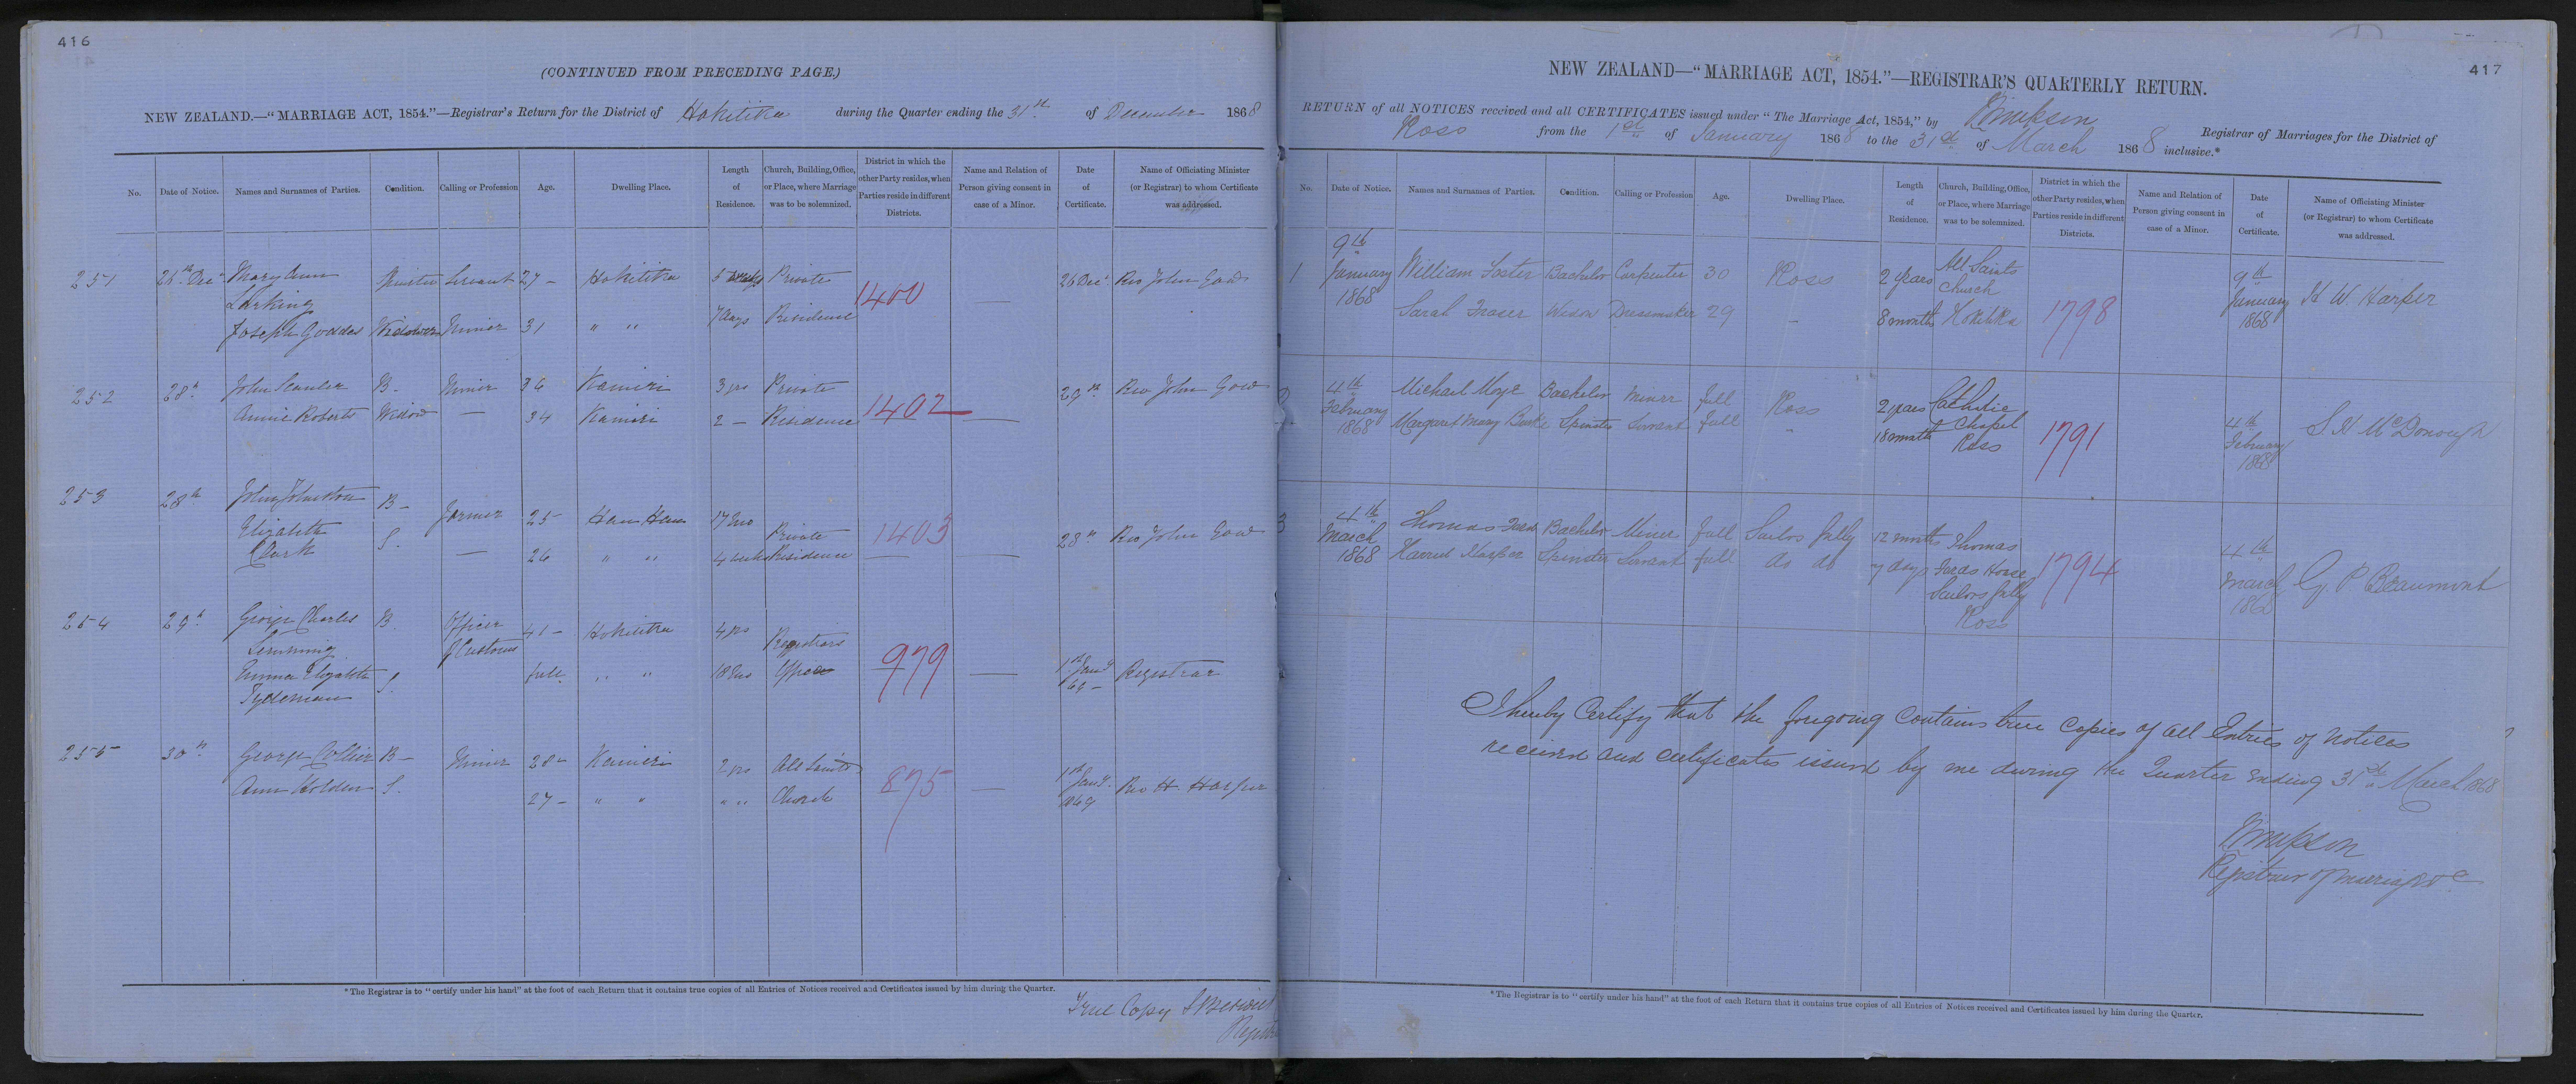 416
(CONTINUED FROM PRECEDING PAGE.)
NEW ZEALAND.—"MARRIAGE ACT, 1854."—Registrar's Return for the District of Hokitika during the Quarter ending the 31st of December 1868
No.
Date of Notice.
Names and Surnames of Parties.
Condition.
Calling or Profession
Age.
Dwelling Place.
Length of Residence.
Church, Building, Office, or Place, where Marriage was to be solemnized.
District in which the other Party resides, when Parties reside in different Districts.
Name and Relation of Person giving consent in case of a Minor.
Date of Certificate.
Name of Officiating Minister (or Registrar) to whom Certificate was addressed.
251 26th Decr Mary Ann Larking Spinster Servant 27 – Hokitika 5 Private 1400 — 26 Decr Rev John Gow
Joseph Goddes Widower Miner 31 " " 7 days Residence
252 28th John B– Miner 36 Kaniri 3 yrs Private 1402 — 29th Rev John Gow
Annie Roberts Widow — 34 Kaniri 2 — Residence
253 28th John Johnston B– Farmer 25 Hau Hau 17 mo Private 1403 — 28th Rev John Gow
Elizabeth Clark S. — 26 " " 4 weeks Residence
254 29th George Charles B. Officer of Customs 41 – Hokitika 4 yrs Registrars 979 — 1st Jany 69 – Registrar
Emma Elizabeth Tydeman S. full " " 18 mo Office
255 30th George Collier B– Miner 28 – Kaniri 2 yrs All Saints 875 — 1st Jany 1869 Rev H. Harper
Ann Holden S. 27 – " " " " Church
*The Registrar is to "certify under his hand" at the foot of each Return that it contains true copies of all Entries of Notices received and Certificates issued by him during the Quarter.
True Copy
417
NEW ZEALAND—"MARRIAGE ACT, 1854."—REGISTRAR'S QUARTERLY RETURN.
RETURN of all NOTICES received and all CERTIFICATES issued under "The Marriage Act, 1854," by Registrar of Marriages for the District of
Ross from the 1st of January 1868 to the 31st of March 1868 inclusive.*
No.
Date of Notice.
Names and Surnames of Parties.
Condition.
Calling or Profession
Age.
Dwelling Place.
Length of Residence.
Church, Building, Office, or Place, where Marriage was to be solemnized.
District in which the other Party resides, when Parties reside in different Districts.
Name and Relation of Person giving consent in case of a Minor.
Date of Certificate.
Name of Officiating Minister (or Registrar) to whom Certificate was addressed.
1 9th January 1868 William Foster Bachelor Carpenter 30 Ross 2 years All Saints Church Hokitika 1798 9th January 1868 H W. Harper
Sarah Fraser Widow Dressmaker 29 – 8 months
2 4th February 1868 Michael Moye Bachelor Miner full Ross 2 years Catholic Chapel Ross 1791 4th February 1868 S. H McDonough
Margaret Mary Burke Spinster Servant full " 18 months
3 4th March 1868 Thomas Bachelor Miner full Sailors Gully 12 months Thomas House Sailors Gully Ross 1794 4th March 1868 G. P. Beaumont
Harriet Harper Spinster Servant full do do 7 days
I hereby Certify that the foregoing contains true copies of all Entries of Notices
received and certificates issued by me during the Quarter ending 31st March 1868
Registrar of Marriages
*The Registrar is to "certify under his hand" at the foot of each Return that it contains true copies of all Entries of Notices received and Certificates issued by him during the Quarter.